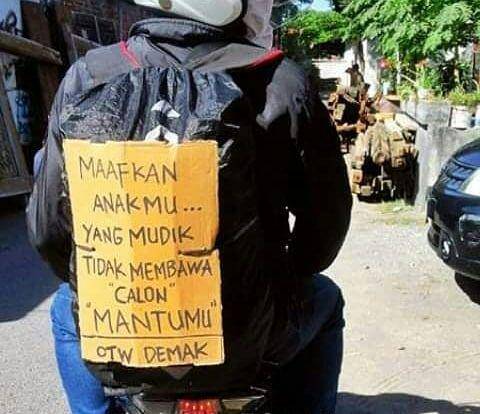 MAAFKAN
ANAKMU...
YANG MUDIK
TIDAK MEMBAWA
"CALON"
"MANTUMU"
OTW DEMAK